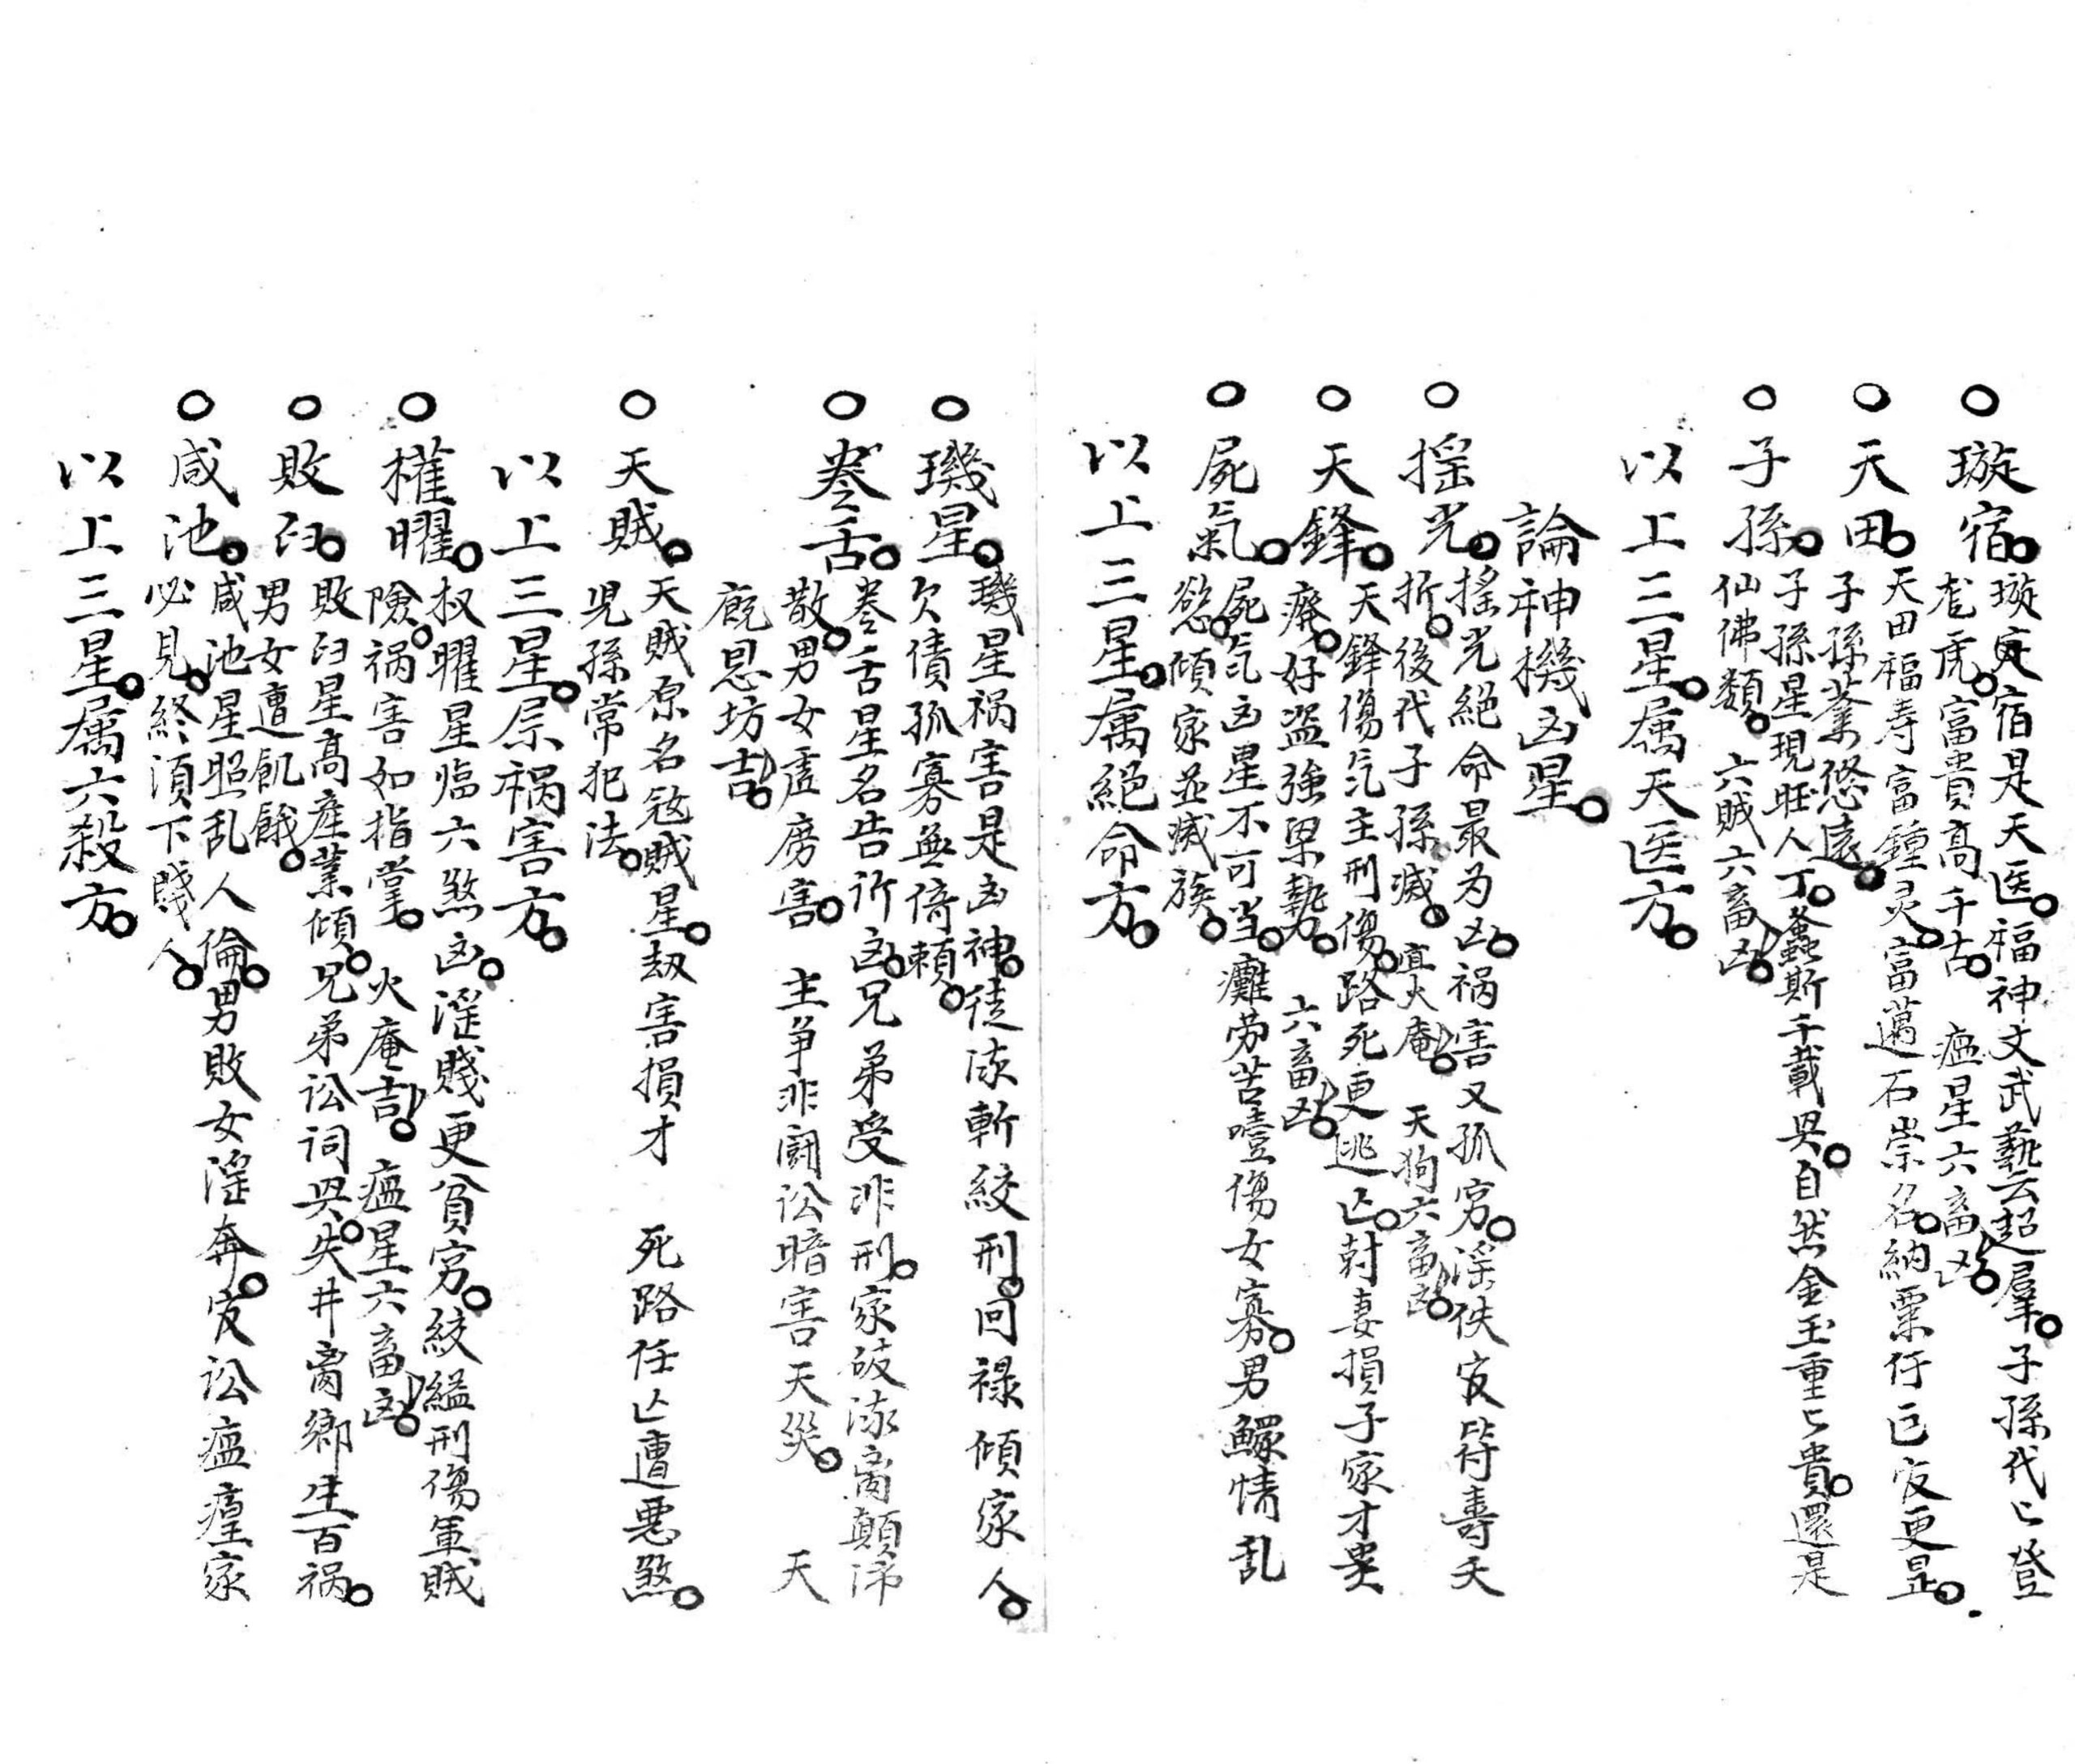 璇宿。璇定宿是天医。福神文武藝云超羣。子孫代〻登
虎。富貴高千古。瘟星六畜凶。
天田。天田福寿富鍾灵。富邁石崇名。納粟行已官更是。
子孫業悠遠。
子孫。子孫星現旺人丁。螽斯千載興。自然金玉重〻貴。還是
仙佛類。六賊六畜凶。
以上三星。属天医方。
論神機凶星。
揺光。搖光絕命最为凶。祸害又孤穷。淫佚官符壽夭
折。後代子孫滅。寘火庵。天狗六畜凶。
天鋒。天鋒傷气主刑傷。路死更逃亡。尅妻損子家才
癆。好盗強梁勢。六畜凶。
屍氣。屍气凶星不可当。癱劳苦噎傷女寡。男鰥情乱
慾。傾家並滅族。
以上三星。属絕命方。
璣星。璣星祸害是凶神。徒流斬絞刑。回禄傾家人。
欠債孤寡無倚頼。
卷舌。卷舌星名告訴凶。兄弟受非刑。家破流离顛沛
散。男女虛癆害。主爭非鬪讼暗害天災。天
恩坊吉。
天賊。天賊原名寇賊星。刼害損才 死路任亡遭悪煞。
児孫常犯法。
以上三星。属祸害方。
權曜。权曜星临六煞凶。淫賤更貧穷。絞縊刑傷軍賊
險。祸害如指掌。火庵吉。瘟星六畜凶。
敗臼。敗臼星高産業傾。兄弟讼詞興。失井离鄉生百祸。
男女遭飢餓。
咸池。咸池星照乱人倫。男敗女淫奔。官讼瘟㾮家
必見。終須下賤人。
以上三星。属六殺方。